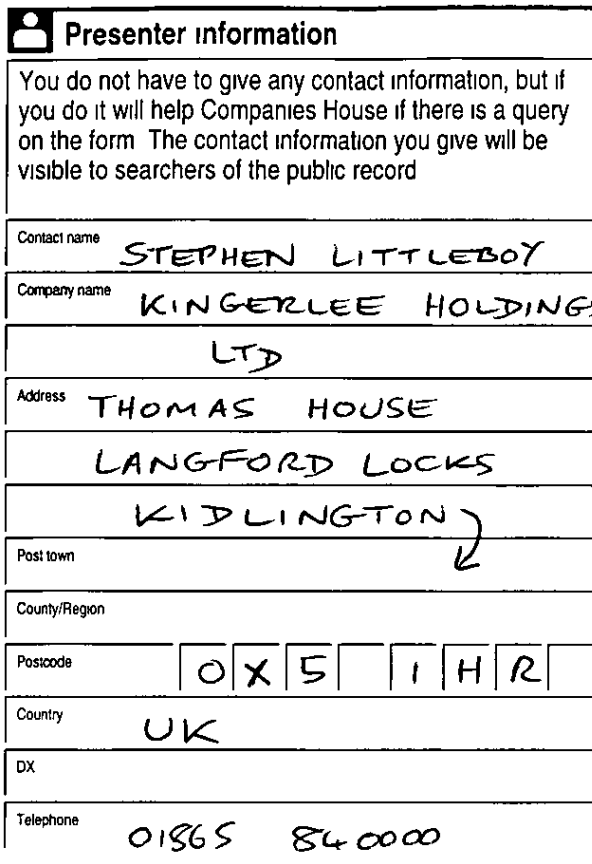 Presenter information
You do not have to give any contact information, but if
you do it will help Companies House if there is a query
on the form The contact information you give will be
visible to searchers of the public record
Contact name STEPHEN LITTLEBOY
Company name KINGERLEE HOLDINGS
LTD
Address THOMAS HOUSE
LANGFORD LOCKS
KIDLINGTON
Post town
County/Region
Postcode OX5 1HR
Country UK
DX
Telephone 01865 840000